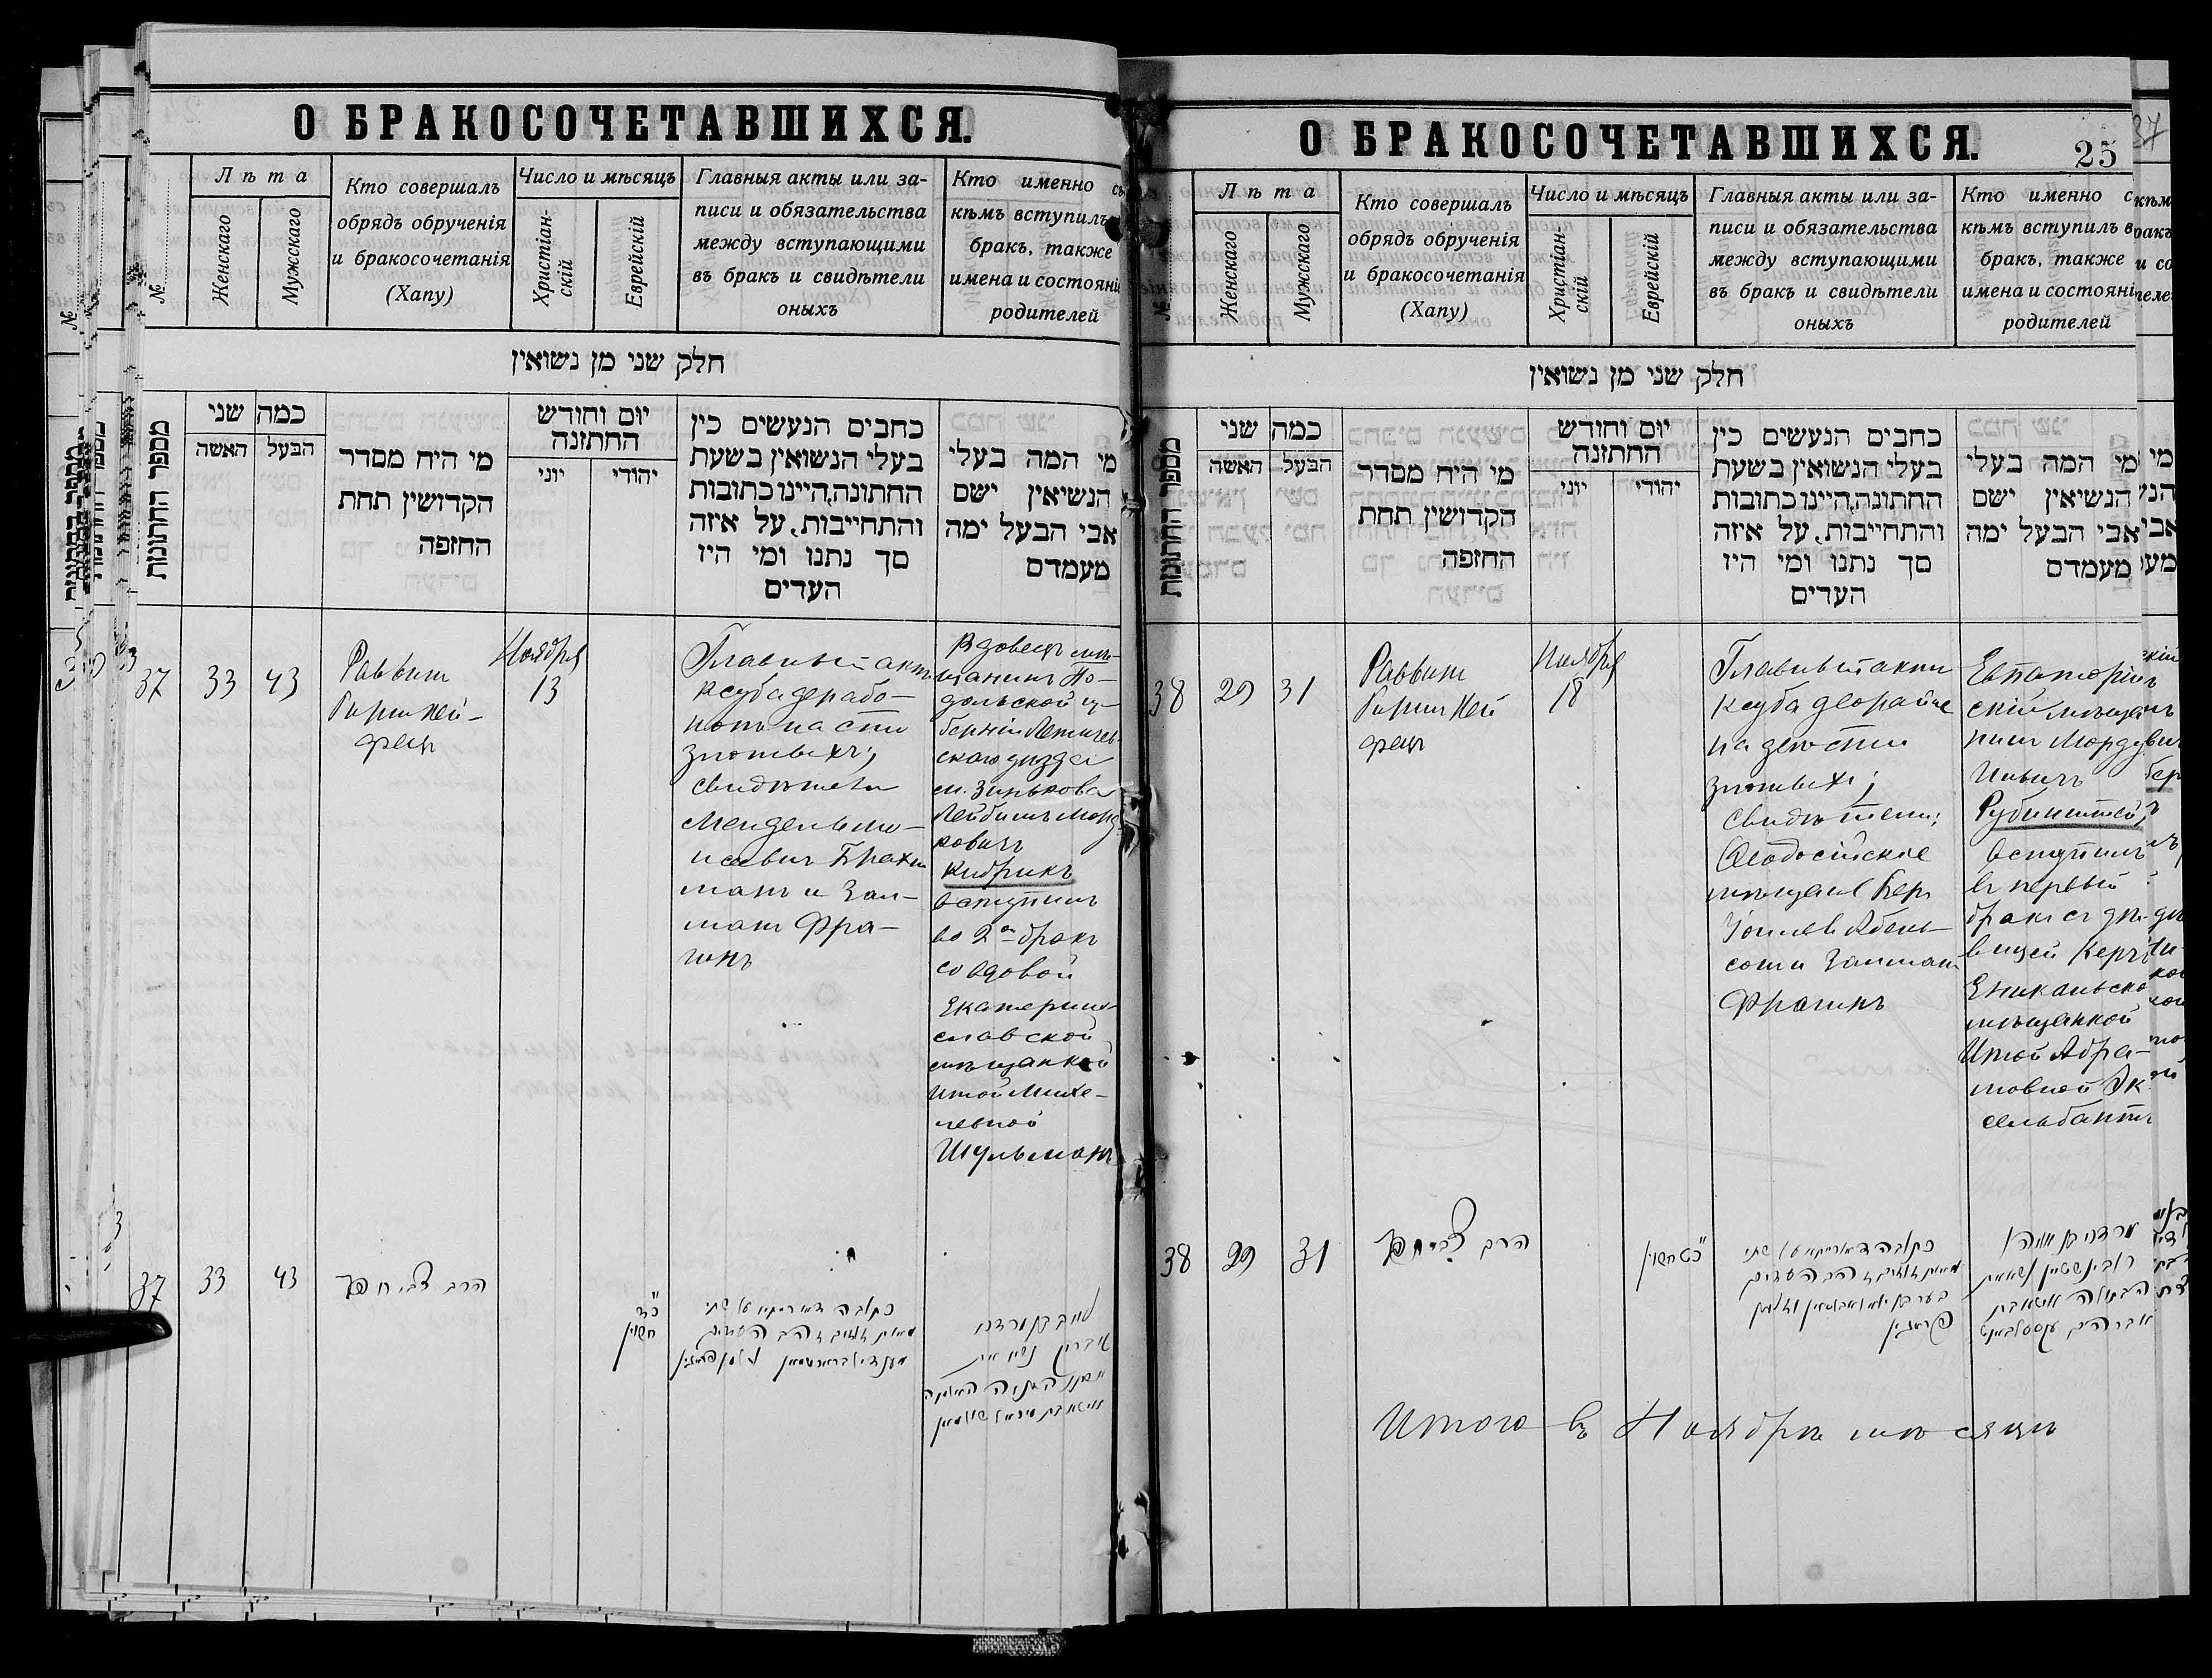 О БРАКОСОЧЕТАВШИХСЯ.
№
Лѣта
Женскаго
Мужскаго
Кто совершалъ
обрядъ обрученія
и бракосочетанія
(Хапу)
Число и мѣсяцъ
Христіан-
скій
Еврейскій
Главныя акты или за-
писи и обязательства
между вступающими
въ бракъ и свидѣтели
оныхъ
Кто именно съ
кѣмъ вступилъ
бракъ, также
имена и состояні
родителей
חלק שני מן נשואין
מספר החתונות
כמה שני
האשה
הבעל
מי היח מסדר
הקדושין תחת
החזפה
יום וחודש
החתזנה
יוני
יהודי
כחבים הנעשים כין
בעלי הנשואין בשעת
החתונה, היינו כתובות
והתחייבות, על איזה
סך נתנו ומי היו
העדים
מי המה בעלי
הנשיאין ישם
אבי הבעל ימה
מעמדם
37
33
43
Раввинъ
Гирш Хей-
фецъ
Ноября
13
Главный актъ
ксуба дерабо-
нонъ на сто
злотыхъ;
свидѣтели
Мендель Мо-
исевич Брахт
манъ и Зал-
манъ Фра-
гинъ
Вдовецъ мѣ-
щанинъ По-
дольской гу-
берніи Летичев-
скаго уѣзда
м. Зинькова
Лейбишъ Морд-
ковичъ
Кидрикъ
вступилъ
во 2ой бракъ
со вдовой
Екатерино-
славской
мѣщанкой
Итой Михе-
левной
Шульманъ
37
33
43
הרב צבי חפץ
כ"ד
חשון
О БРАКОСОЧЕТАВШИХСЯ.
25
37
№
Лѣта
Женскаго
Мужскаго
Кто совершалъ
обрядъ обрученія
и бракосочетанія
(Хапу)
Число и мѣсяцъ
Христіан-
скій
Еврейскій
Главныя акты или за-
писи и обязательства
между вступающими
въ бракъ и свидѣтели
оныхъ
Кто именно с
кѣмъ вступилъ в
бракъ, также
имена и состояні
родителей
חלק שני מן נשואין
מספר החתונות
כמה שני
האשה
הבעל
מי היח מסדר
הקדושין תחת
החזפה
יום וחודש
החתזנה
יוני
יהודי
כחבים הנעשים כין
בעלי הנשואין בשעת
החתונה, היינו כתובות
והתחייבות, על איזה
סך נתנו ומי היו
העדים
מי המה בעלי
הנשיאין ישם
אבי הבעל ימה
מעמדם
38
29
31
Раввинъ
Гирш Хей
фецъ
Ноября
18
Главный актъ
ксуба деорайсе
на двѣсти
злотыхъ;
свидѣтели:
Ѳеодосійскіе
мѣщане Беръ
Іоилев Абель-
сонъ и Залманъ
Фрагинъ
Евпаторій-
скій мѣща-
нинъ Мордух
Рубинштей
вступилъ
въ первый
бракъ съ дѣ-
вицей Керчь
Еникальско
мѣщанкой
Итой Абра-
мовной Эк
сельбантъ
38
29
31
הרב צבי חפץ
כ"ט חשון
Итого въ Ноябрѣ мѣсяцѣ